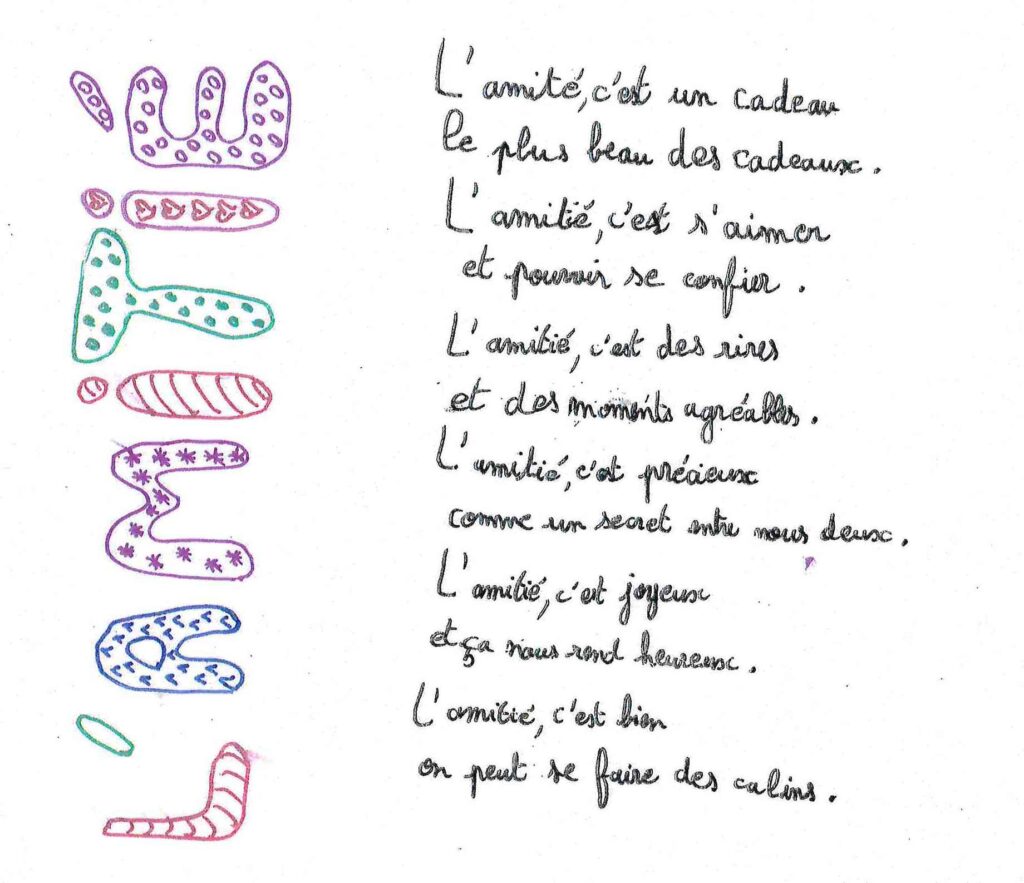 L'AMiTiÉ
L'amité, c'est un cadeau
le plus beau des cadeaux.
L'amitié, c'est s'aimer
et pouvoir se confier.
L'amitié, c'est des rires
et des moments agréables.
L'amitié, c'est précieux
comme un secret entre nous deux.
L'amitié, c'est joyeux
et ça nous rend heureux.
L'amitié, c'est bien
on peut se faire des calins.